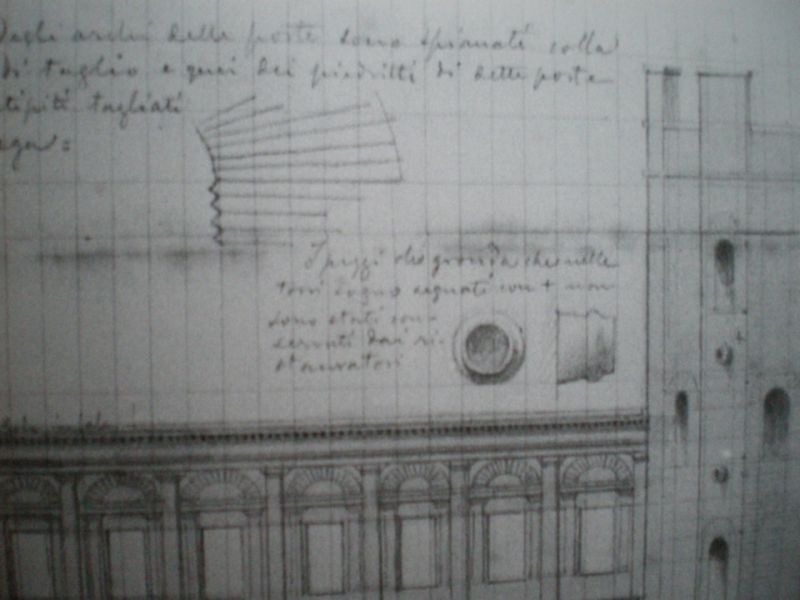 degli archi delle porte sono spianati colla
di taglio e quei dei piedritti di dette porte
stipiti tagliati
ega:
I pezzi di gronda che nelle
torri sogno segnati con + non
sono stati con-
servati dai ri-
stauratori